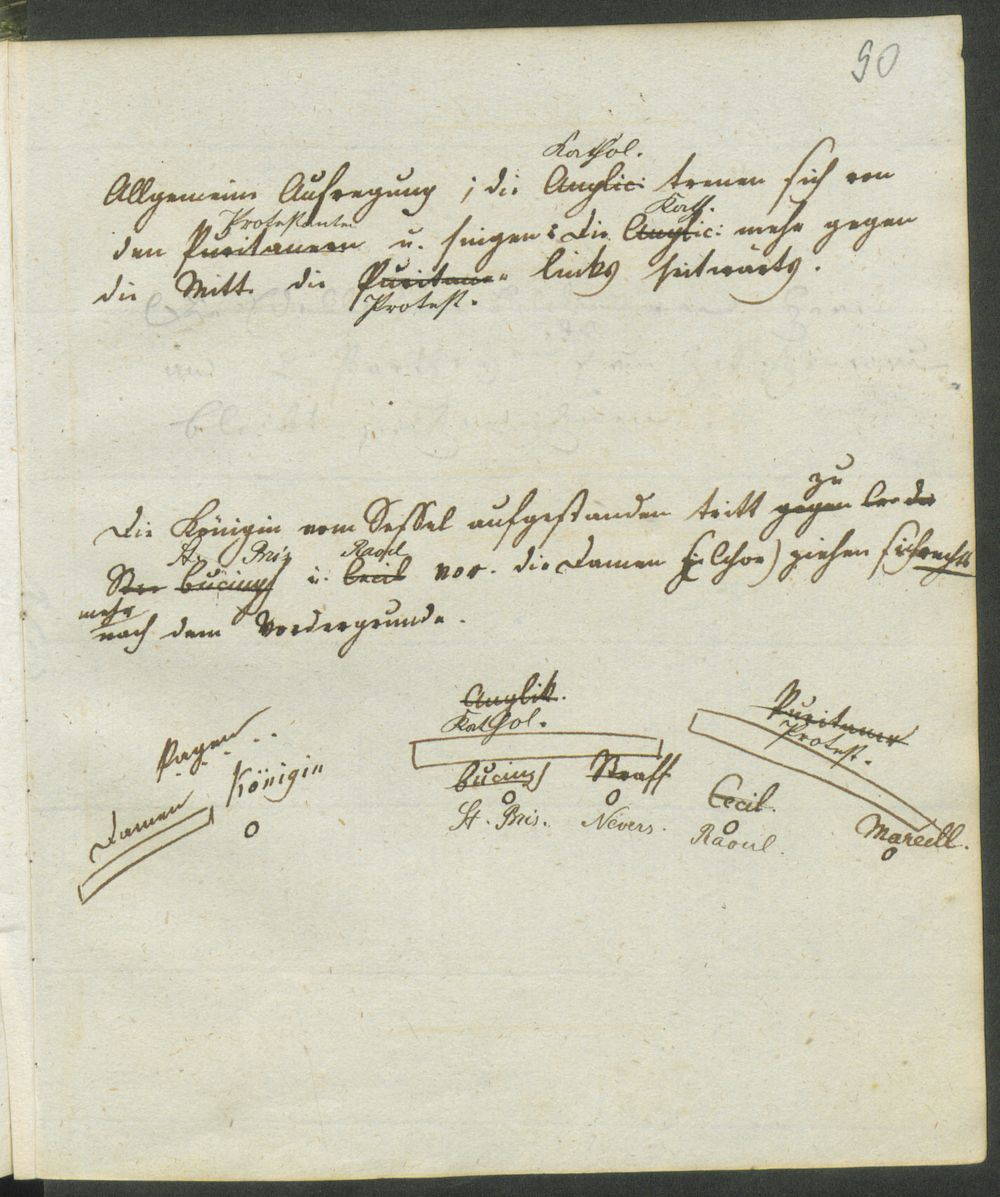 90
Kathol.
Allgemeine Aufregung; die Anglic: trenen sich von
Protestanten Kath.
den Puritanern u. singen: Die Anglic: mehr gegen
die Mitte die Puritaner links seitwärts.
Protest.
zu
Die Königin vom Sessel aufgestanden tritt gegen
St. Bris Raoul
bucingh u. Cecil vor. die Damen (: Chor) ziehen sich rechts
mehr
nach dem Vordergrunde.
Anglik.
Kathol.
Puritaner
Protest.
Pagen
Königin
Damen
bucingh Straff.
Cecil.
St. Bris. Nevers.
Raoul.
Marcell.